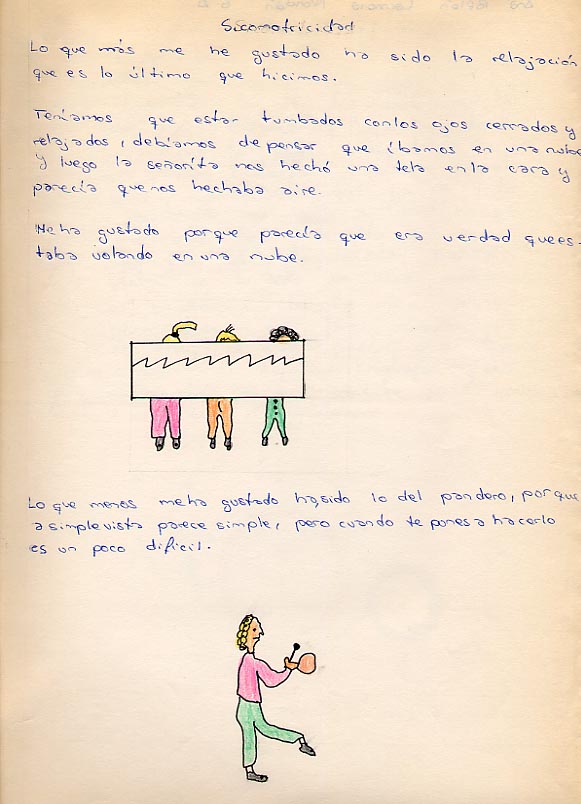 Sicomotricidad
Lo que más me he gustado ha sido la relajación
que es lo último que hicimos.
Teníamos que estar tumbados con los ojos cerrados y
relajados, debíamos de pensar que íbamos en una nube
y luego la señorita nos hechó una tela en la cara y
parecía que nos hechaba aire.
Me ha gustado porque parecía que era verdad que es-
taba volando en una nube.
Lo que menos me ha gustado ha sido lo del pandero, porque
a simple vista parece simple, pero cuando te pones a hacerlo
es un poco dificil.